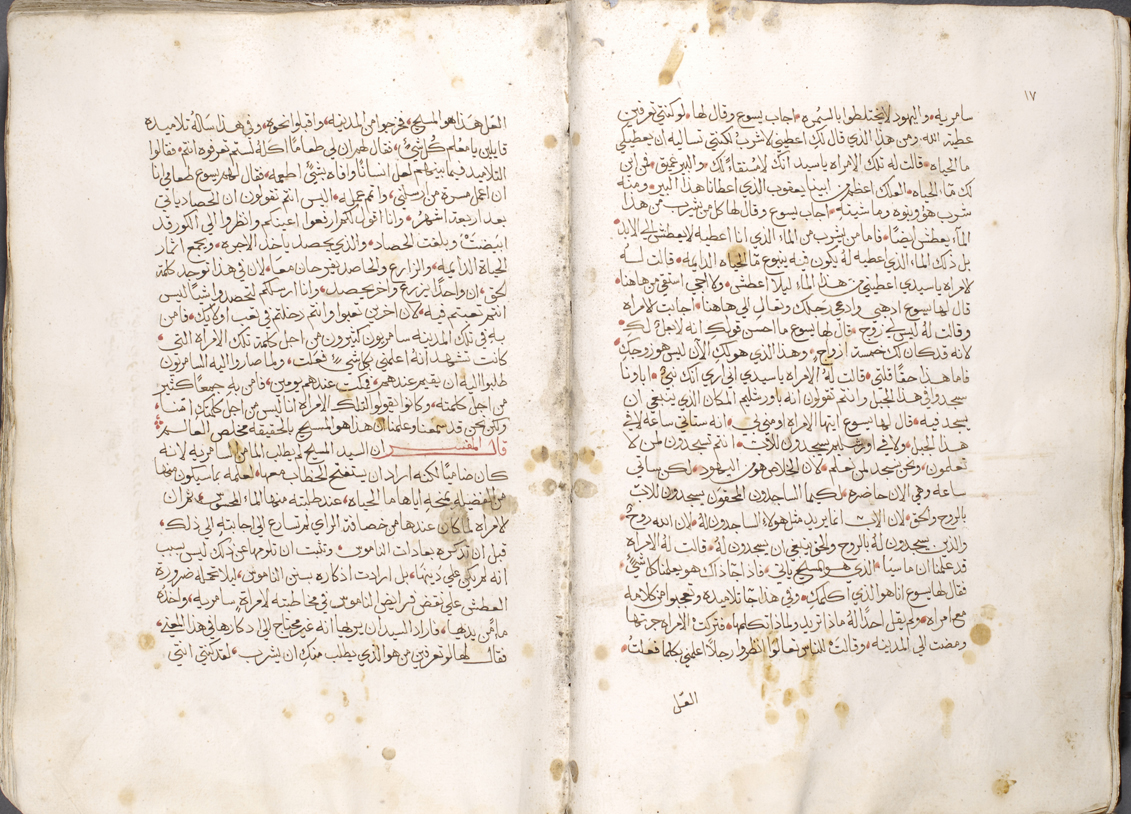 ١٧
سامريه واليهود لا يختلطوا بالسمره اجاب يسوع وقال لها لو كنتي تعرفين
عطية الله ومن هذا الذي قال لك اعطيني لاشرب لكنتي تساليه ان يعطيكي
ما الحياه قالت له تلك الامراه ياسيد انك لا مستقاء لك والبير عميق فمن اين
لك ما الحياه العلك اعظم من ابينا يعقوب الذي اعطانا هذا البير ومنه
شرب هو وبنوه وماشيته اجاب يسوع وقال لها كل من يشرب من هذا
الماء يعطش ايضا فاما من يشرب من الماء الذي انا اعطيه لا يعطش الي الابد
بل ذلك الماء الذي اعطيه له يكون فيه ينبوع ما الحياه الدايمه قالت له
لامراه ياسيدي اعطيني من هذا الماء ليلا اعطش ولا اجي استقي من هاهنا
قال لها يسوع اذهبي وادعي رجلك وتعالي الي هاهنا اجابت لامراه
وقالت له ليس لي زوج قال لها يسوع ما احسن قولك انه لا بعل لك
لانه قد كان لك خمسة ازواج وهذا الذي هو لك الان ليس هو زوجك
فاما هذا حقا قلتي قالت له الامراه ياسيدي اني اري انك نبي اباونا
سجدوا في هذا الجبل وانتم تقولون انه باورشليم المكان الذي ينبغي ان
يسجد فيه قال لها يسوع ايتها الامراه اومني بي انه ستاتي ساعة لا في
هذا الجبل ولا في اورشليم يسجدون للاب انتم تسجدون لمن لا
تعلمون ونحن نسجد لمن نعلم لان الخلاص هو من اليهود لكن ستاتي
ساعه وهي الان حاضره لكيما الساجدون المحقون يسجدون للاب
بالروح والحق لان الاب انما يريد مثل هولاء الساجدون له لان الله روح
والذين يسجدون له بالروح والحق ينبغي ان يسجدون له قالت له الامراه
قد علمنا ان ماسيا الذي هو المسيح ياتي فاذا جا ذاك هو يعلمنا كل شي
فقال لها يسوع انا هو الذي اكلمك وفي هذا جا تلاميذه وتعجبوا من كلامه
مع امراه ولم يقل احدا له ماذا تريد ولماذا تكلمها فتركت الامراه جرتها
ومضت الي المدينه وقالت للناس تعالوا انظروا رجلا اعلمني بكلما فعلت
العل
العل هذا هو المسيح فخرجوا من المدينه واقبلوا نحوه وفي هذا ساله تلاميذه
قايلين يا معلم كل شي فقال لهم ان لي طعاما اكله لستم تعرفوه انتم فقالوا
التلاميذ فيما بينهم لعل انسانا وافاه بشي اطعمه فقال لهم يسوع طعامي انا
ان اعمل مسرة من ارسلني واتم عمله اليس انتم تقولون ان الحصاد ياتي
بعد اربعة اشهر وانا اقول لكم ارفعوا اعينكم وانظروا الي الكور قد
ابيضت وبلغت الحصاد والذي يحصد ياخذ الاجره ويجمع اثمار
الحياة الدايمه والزارع والحاصد يفرحان معا لان في هذا توجد كلمة
الحق ان واحدا يزرع واخر يحصد وانا ارسلكم لتحصدوا شيا ليس
انتم تعبتم فيه لان اخرين تعبوا وانتم دخلتم في تعب اوليك فامن
به في تلك المدينه سامريون كثيرون من اجل كلمة تلك الامراه التي
كانت تشهد انه اعلمني بكل شي فعلت ولما صاروا اليه السامريون
طلبوا اليه ان يقيم عندهم فمكث عندهم يومين فامن به جمعا كثير
من اجل كلمته وكانوا يقولوا لتلك الامراه انا ليس من اجل كلامك امنا
ولكن نحن قد سمعنا وعلمنا ان هذا هو المسيح بالحقيقه مخلص العالم
قال المفسر ان السيد المسيح لم يطلب الما من السامريه لانه
كان ضاميا لكنه اراد ان يستفتح الخطاب معها لعلمه بما سيكون منها
من الفضيله ومنحه اياها ما الحياه عند طلبته منها الماء المحسوس ثم ان
لامراه لما كان عندها من خصافة الراي لم تسارع الي اجابته الي ذلك
قبل ان تذكره بعادات الناموس وثبت ان تلومها عن ذلك ليس بسبب
انه لم يكن علي دينها بل ارادت اذكاره بسنن الناموس ليلا تحمله ضرورة
العطش علي نقض فرايض الناموس في مخاطبته لامراة سامريه واخذه
ما من يدها فاراد السيد ان يريها انه غير محتاج الي اذكارها في هذا المعني
فقال لها لو تعرفين من هو الذي يطلب منك ان يشرب لقد كنتي انتي